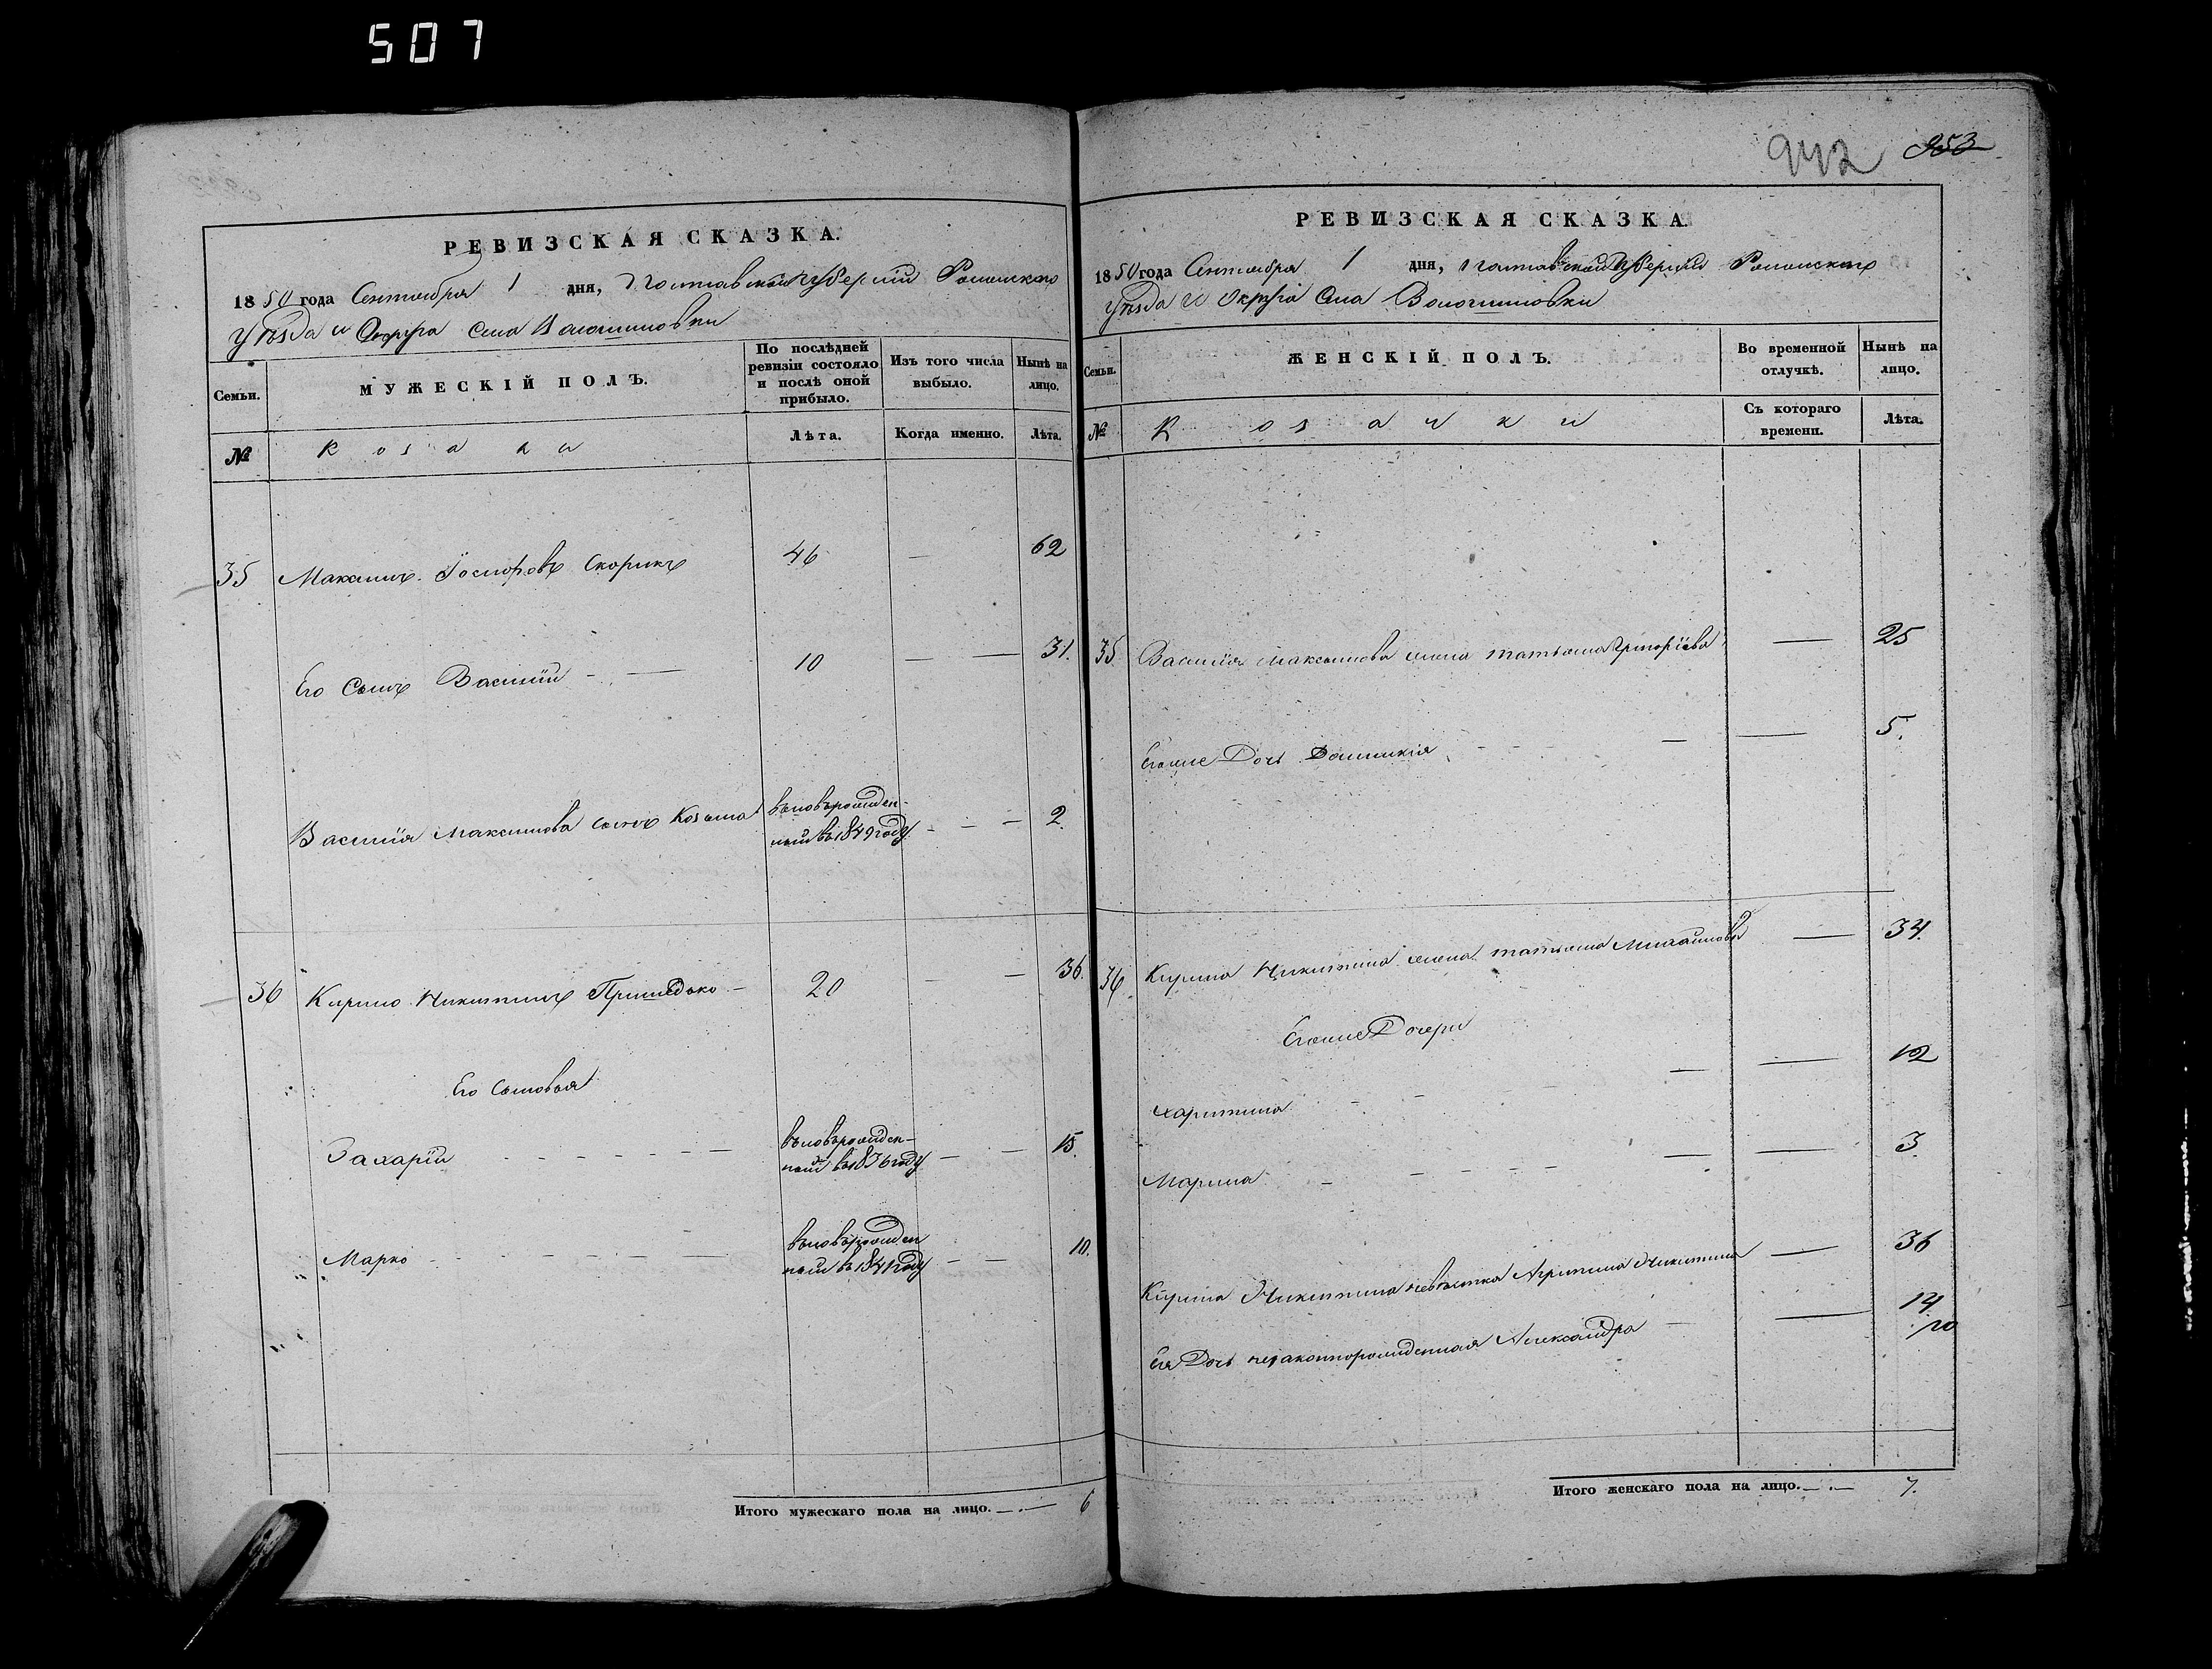 507
942 953
РЕВИЗСКАЯ СКАЗКА.
1850 года Сентября 1 дня, Полтавской Губерніи Роменского
Уѣзда и Округа Села Волошиновки
Семьи. МУЖЕСКІЙ ПОЛЪ. По послѣдней ревизіи состояло и послѣ оной прибыло. Изъ того числа выбыло. Нынѣ на лицо.
№ Козаки Лѣта. Когда именно. Лѣта.
35 Максимъ Іосифовъ Скорикъ 46 — 62
Его Сынъ Василій — 10 — — 31.
Василія Максимова сынъ Козьма вьновьрожден-
ный въ 1849 году — — — 2.
36 Кирило Никитинъ Пришедько — 20 — — 36.
Его Сыновья
Захарій — вьновьрожден-
ный въ 1836 году — — 15.
Марко — вьновьрожден
ный въ 1841 году — — 10.
Итого мужескаго пола на лицо. — 6
РЕВИЗСКАЯ СКАЗКА.
1850 года Сентября 1 дня, Полтавской Губерніи Роменского
Уѣзда и Округа Села Волошиновки
Семьи. ЖЕНСКІЙ ПОЛЪ. Во временной отлучкѣ. Нынѣ на лицо.
№ Козачки Съ котораго времени. Лѣта.
35. Василія Максимова жена Татьяна Григоріева — 25
Егоже Дочь Домникія — — 5.
36 Кирила Никитина жена Татьяна Михайлова — 34.
Егоже Дочери
Харитина — — 12
Марина — — 3
Кирила Никитина невѣстка Агрипина Никитина — 36
Ея Дочь незаконнорожденная Александра — 14
Итого женскаго пола на лицо. — 7.